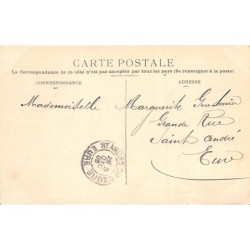 CARTE POSTALE
La Correspondance de ce côté n'est pas acceptée par tous les pays (Se renseigner à la poste)
CORRESPONDANCE
ADRESSE
Mademoiselle
Marguerite
Grande Rue
Saint André
Eure